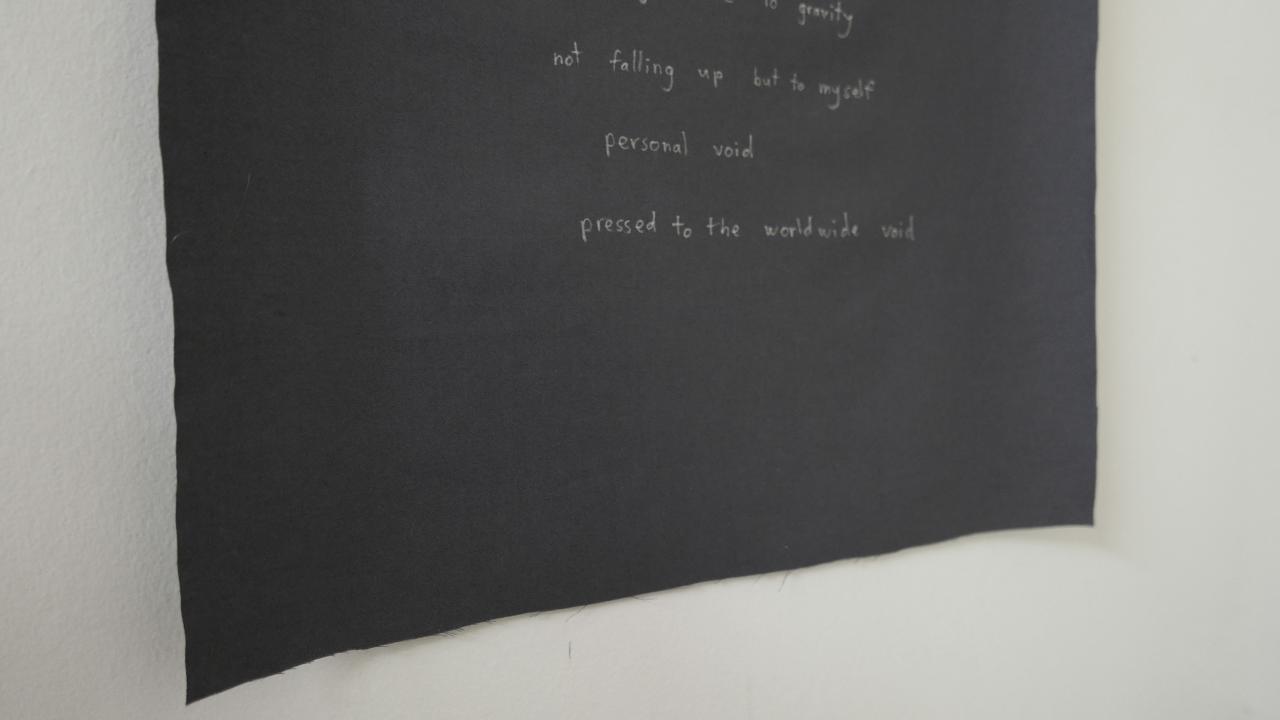 to gravity
not falling up but to myself
personal void
pressed to the worldwide void